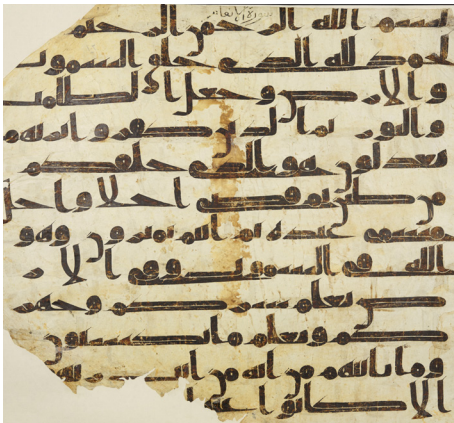 سورة الانعام
بسم الله الرحمن الرحيم
لحمد لله الذى خلق السموت
والارض وجعل الظلمت
والنور ثم الذين كفروا بربهم
يعدلون هو الذى خلقكم
من طين ثم قضى اجلا واجل
مسمى عنده ثم انتم تمترون وهو
الله فى السموت وفى الار
ض يعلم سركم وجهر
كم ويعلم ما تكسبون
وما تاتيهم من ايه من ايت
الا كانوا عنها